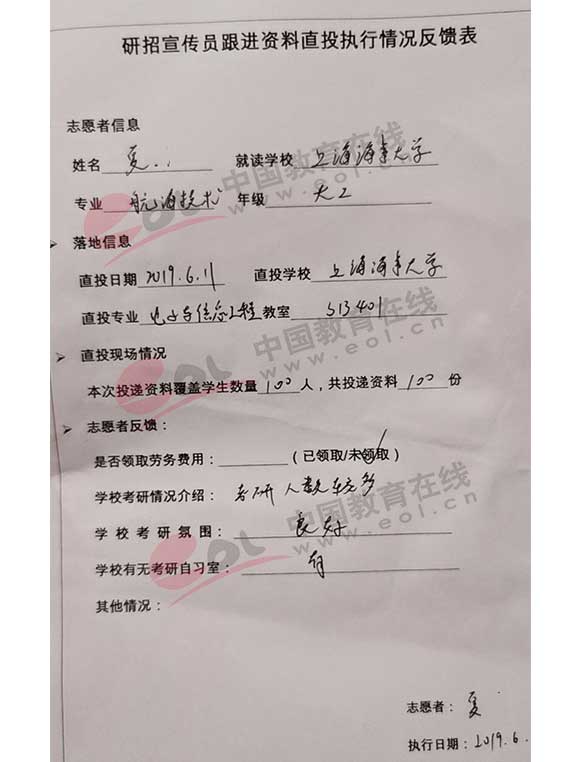 研招宣传员跟进资料直投执行情况反馈表
志愿者信息
姓名 夏.. 就读学校 上海海事大学
专业 航海技术 年级 大二
落地信息
直投日期 2019.6.11 直投学校 上海海事大学
直投专业 电子与信息工程 教室 5B401
直投现场情况
本次投递资料覆盖学生数量 100 人，共投递资料 100 份
志愿者反馈：
是否领取劳务费用： （已领取/未领取）
学校考研情况介绍： 考研人数较多
学校考研氛围： 良好
学校有无考研自习室： 有
其他情况：
志愿者： 夏
执行日期：2019.6.
eol 中国教育在线
www.eol.cn
eol 中国教育在线
www.eol.cn
eol 中国教育在线
www.eol.cn